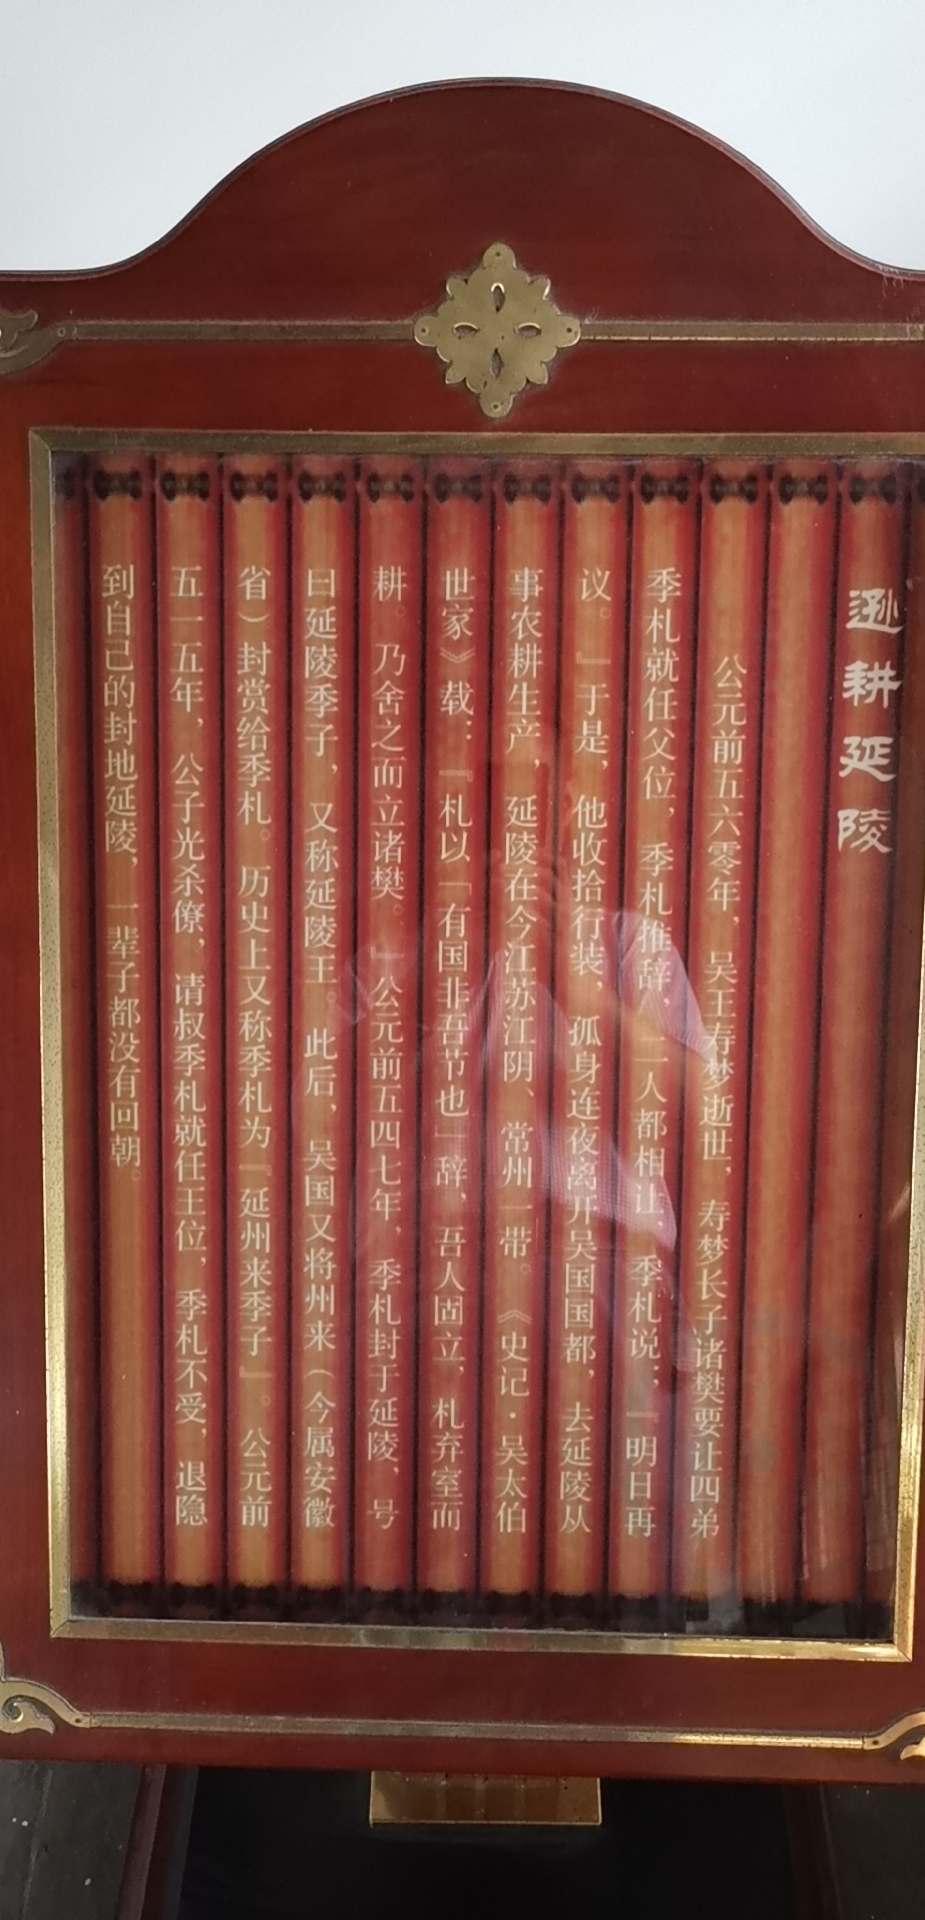 逊耕延陵
公元前五六零年，吴王寿梦逝世，寿梦长子诸樊要让四弟
季札就任父位，季札推辞，二人都相让，季札说：『明日再
议。』于是，他收拾行装，孤身连夜离开吴国国都，去延陵从
事农耕生产，延陵在今江苏江阴、常州一带。《史记·吴太伯
世家》载：『札以「有国非吾节也」辞，吾人固立，札弃室而
耕。乃舍之而立诸樊。』公元前五四七年，季札封于延陵，号
曰延陵季子，又称延陵王。此后，吴国又将州来（今属安徽
省）封赏给季札。历史上又称季札为『延州来季子』。公元前
五一五年，公子光杀僚，请叔季札就任王位，季札不受，退隐
到自己的封地延陵，一辈子都没有回朝。